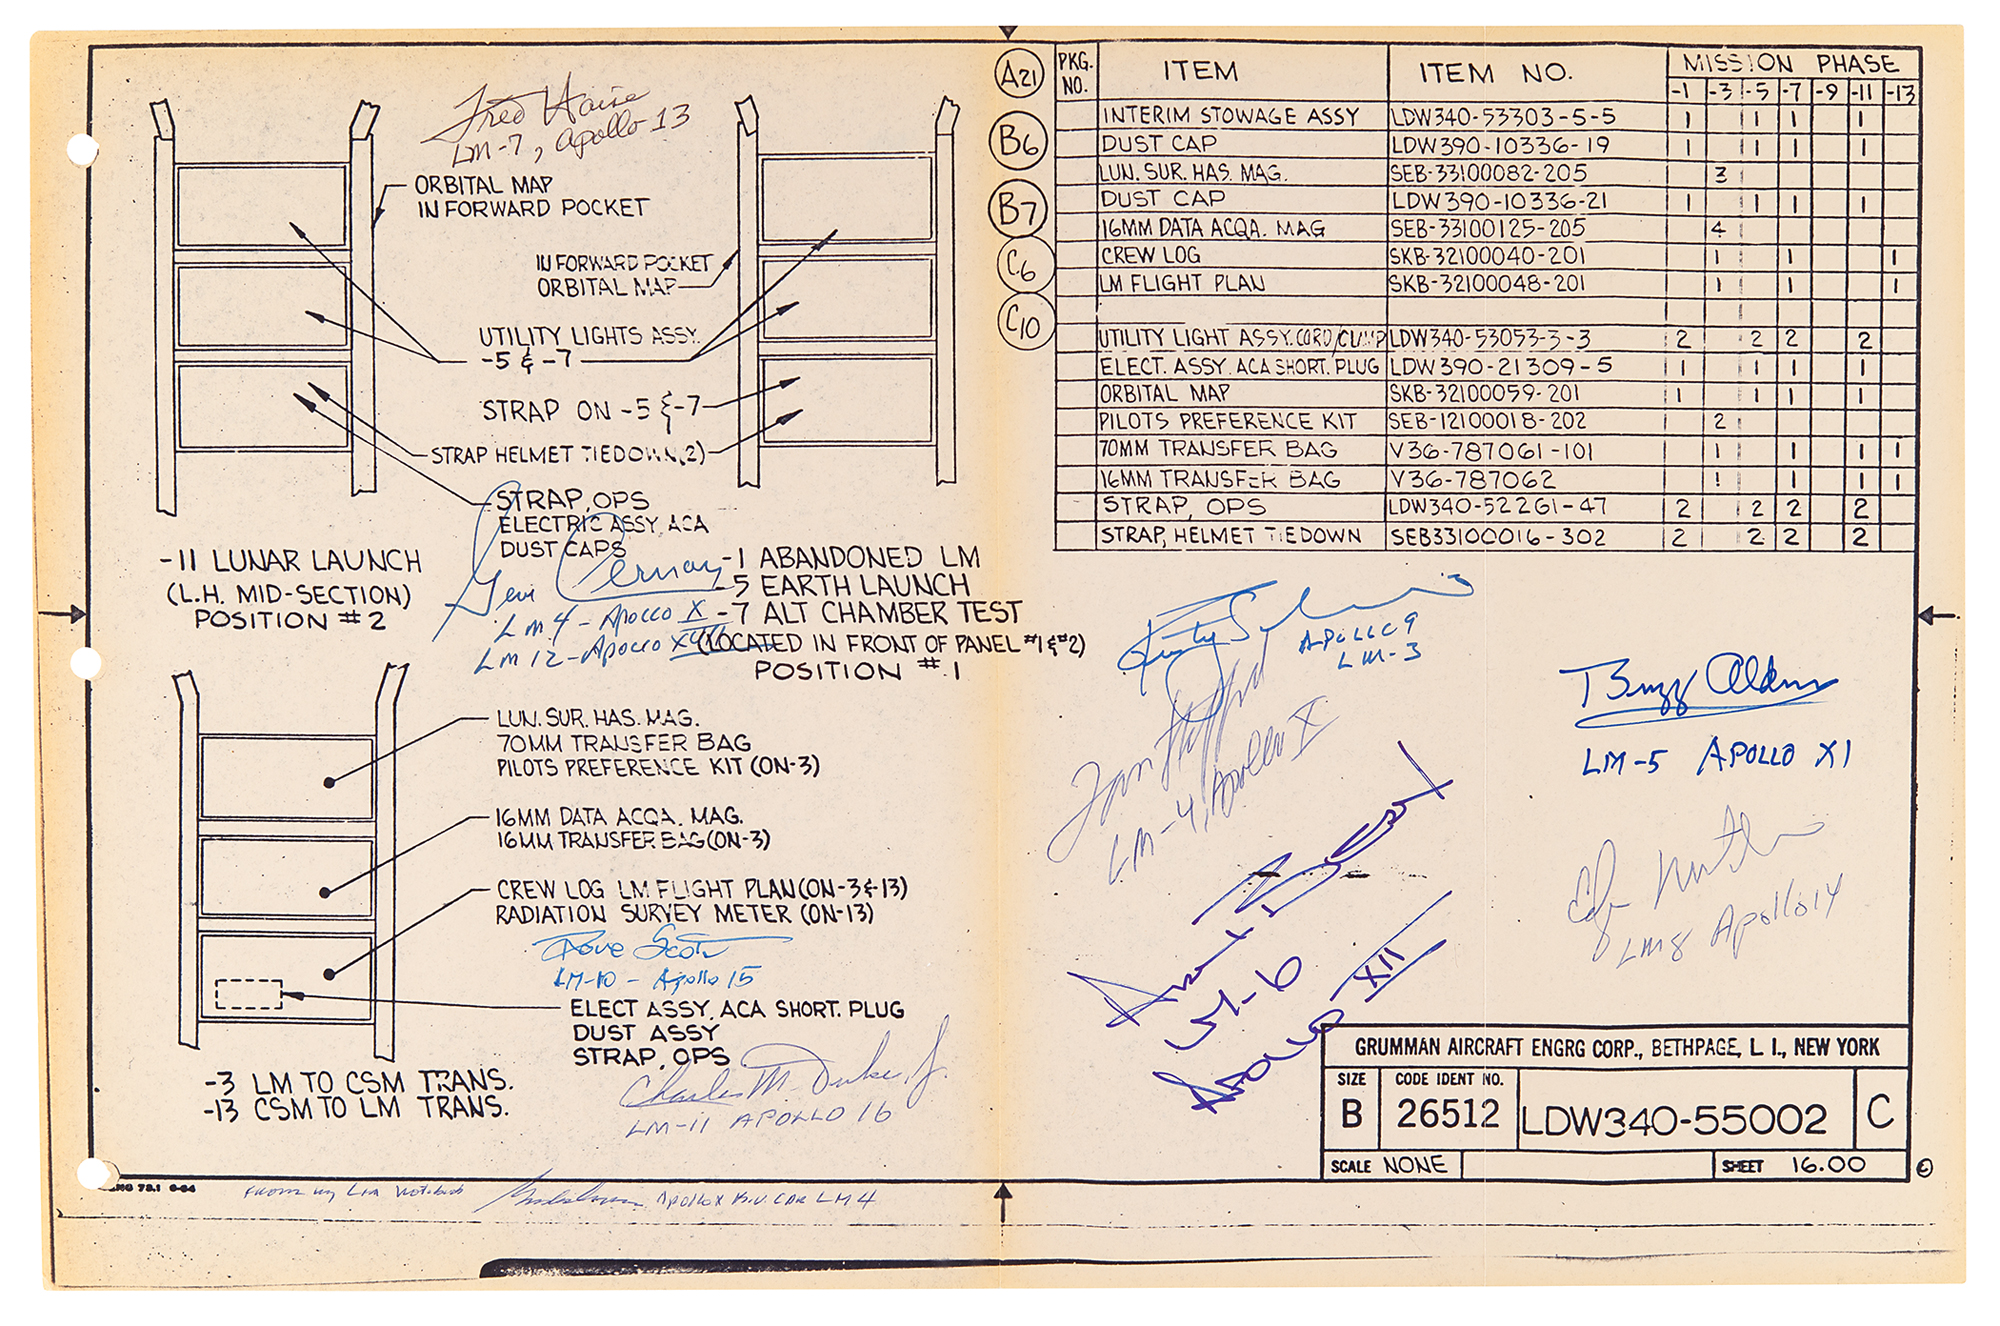 Fred Haise
LM-7, Apollo 13
ORBITAL MAP
IN FORWARD POCKET
IN FORWARD POCKET
ORBITAL MAP
UTILITY LIGHTS ASSY.
-5 & -7
STRAP ON -5 & -7
STRAP HELMET TIEDOWN(2)
STRAP, OPS
ELECTRIC ASSY, ACA
DUST CAPS
-11 LUNAR LAUNCH
(L.H. MID-SECTION)
POSITION #2
Gene Cernan
LM 4 - Apollo X
LM 12 - Apollo XVII
-1 ABANDONED LM
-5 EARTH LAUNCH
-7 ALT CHAMBER TEST
(LOCATED IN FRONT OF PANEL #1 & #2)
POSITION #1
LUN. SUR. HAS. MAG.
70MM TRANSFER BAG
PILOTS PREFERENCE KIT (ON-3)
16MM DATA ACQA. MAG.
16MM TRANSFER BAG (ON-3)
CREW LOG LM FLIGHT PLAN (ON-3 & -13)
RADIATION SURVEY METER (ON-13)
Dave Scott
LM-10 - Apollo 15
ELECT ASSY, ACA SHORT. PLUG
DUST ASSY
STRAP, OPS
-3 LM TO CSM TRANS.
-13 CSM TO LM TRANS.
Charles M. Duke, Jr.
LM-11 APOLLO 16
A21
B6
B7
C6
C10
PKG. NO. ITEM ITEM NO. MISSION PHASE
-1 -3 -5 -7 -9 -11 -13
INTERIM STOWAGE ASSY LDW340-53303-5-5 1 1 1 1
DUST CAP LDW390-10336-19 1 1 1 1
LUN. SUR. HAS. MAG. SEB-33100082-205 3
DUST CAP LDW390-10336-21 1 1 1 1
16MM DATA ACQA. MAG SEB-33100125-205 4
CREW LOG SKB-32100040-201 1 1 1
LM FLIGHT PLAN SKB-32100048-201 1 1 1
UTILITY LIGHT ASSY. CORD/CLAMP LDW340-53053-3-3 2 2 2 2
ELECT. ASSY. ACA SHORT. PLUG LDW390-21309-5 1 1 1 1
ORBITAL MAP SKB-32100059-201 1 1 1 1
PILOTS PREFERENCE KIT SEB-12100018-202 2
70MM TRANSFER BAG V36-787061-101 1 1 1 1
16MM TRANSFER BAG V36-787062 1 1 1 1
STRAP, OPS LDW340-52261-47 2 2 2 2
STRAP, HELMET TIEDOWN SEB33100016-302 2 2 2 2
APOLLO 9
LM-3
Tom Stafford
LM-4, Apollo X
Buzz Aldrin
LM-5 APOLLO XI
LM-6
APOLLO XII
Edgar Mitchell
LM8 Apollo 14
GRUMMAN AIRCRAFT ENGRG CORP., BETHPAGE, L I., NEW YORK
SIZE B
CODE IDENT NO. 26512
LDW340-55002
C
SCALE NONE
SHEET 16.00
73.1 6-64
From my LM Notebook
Apollo X LM 4